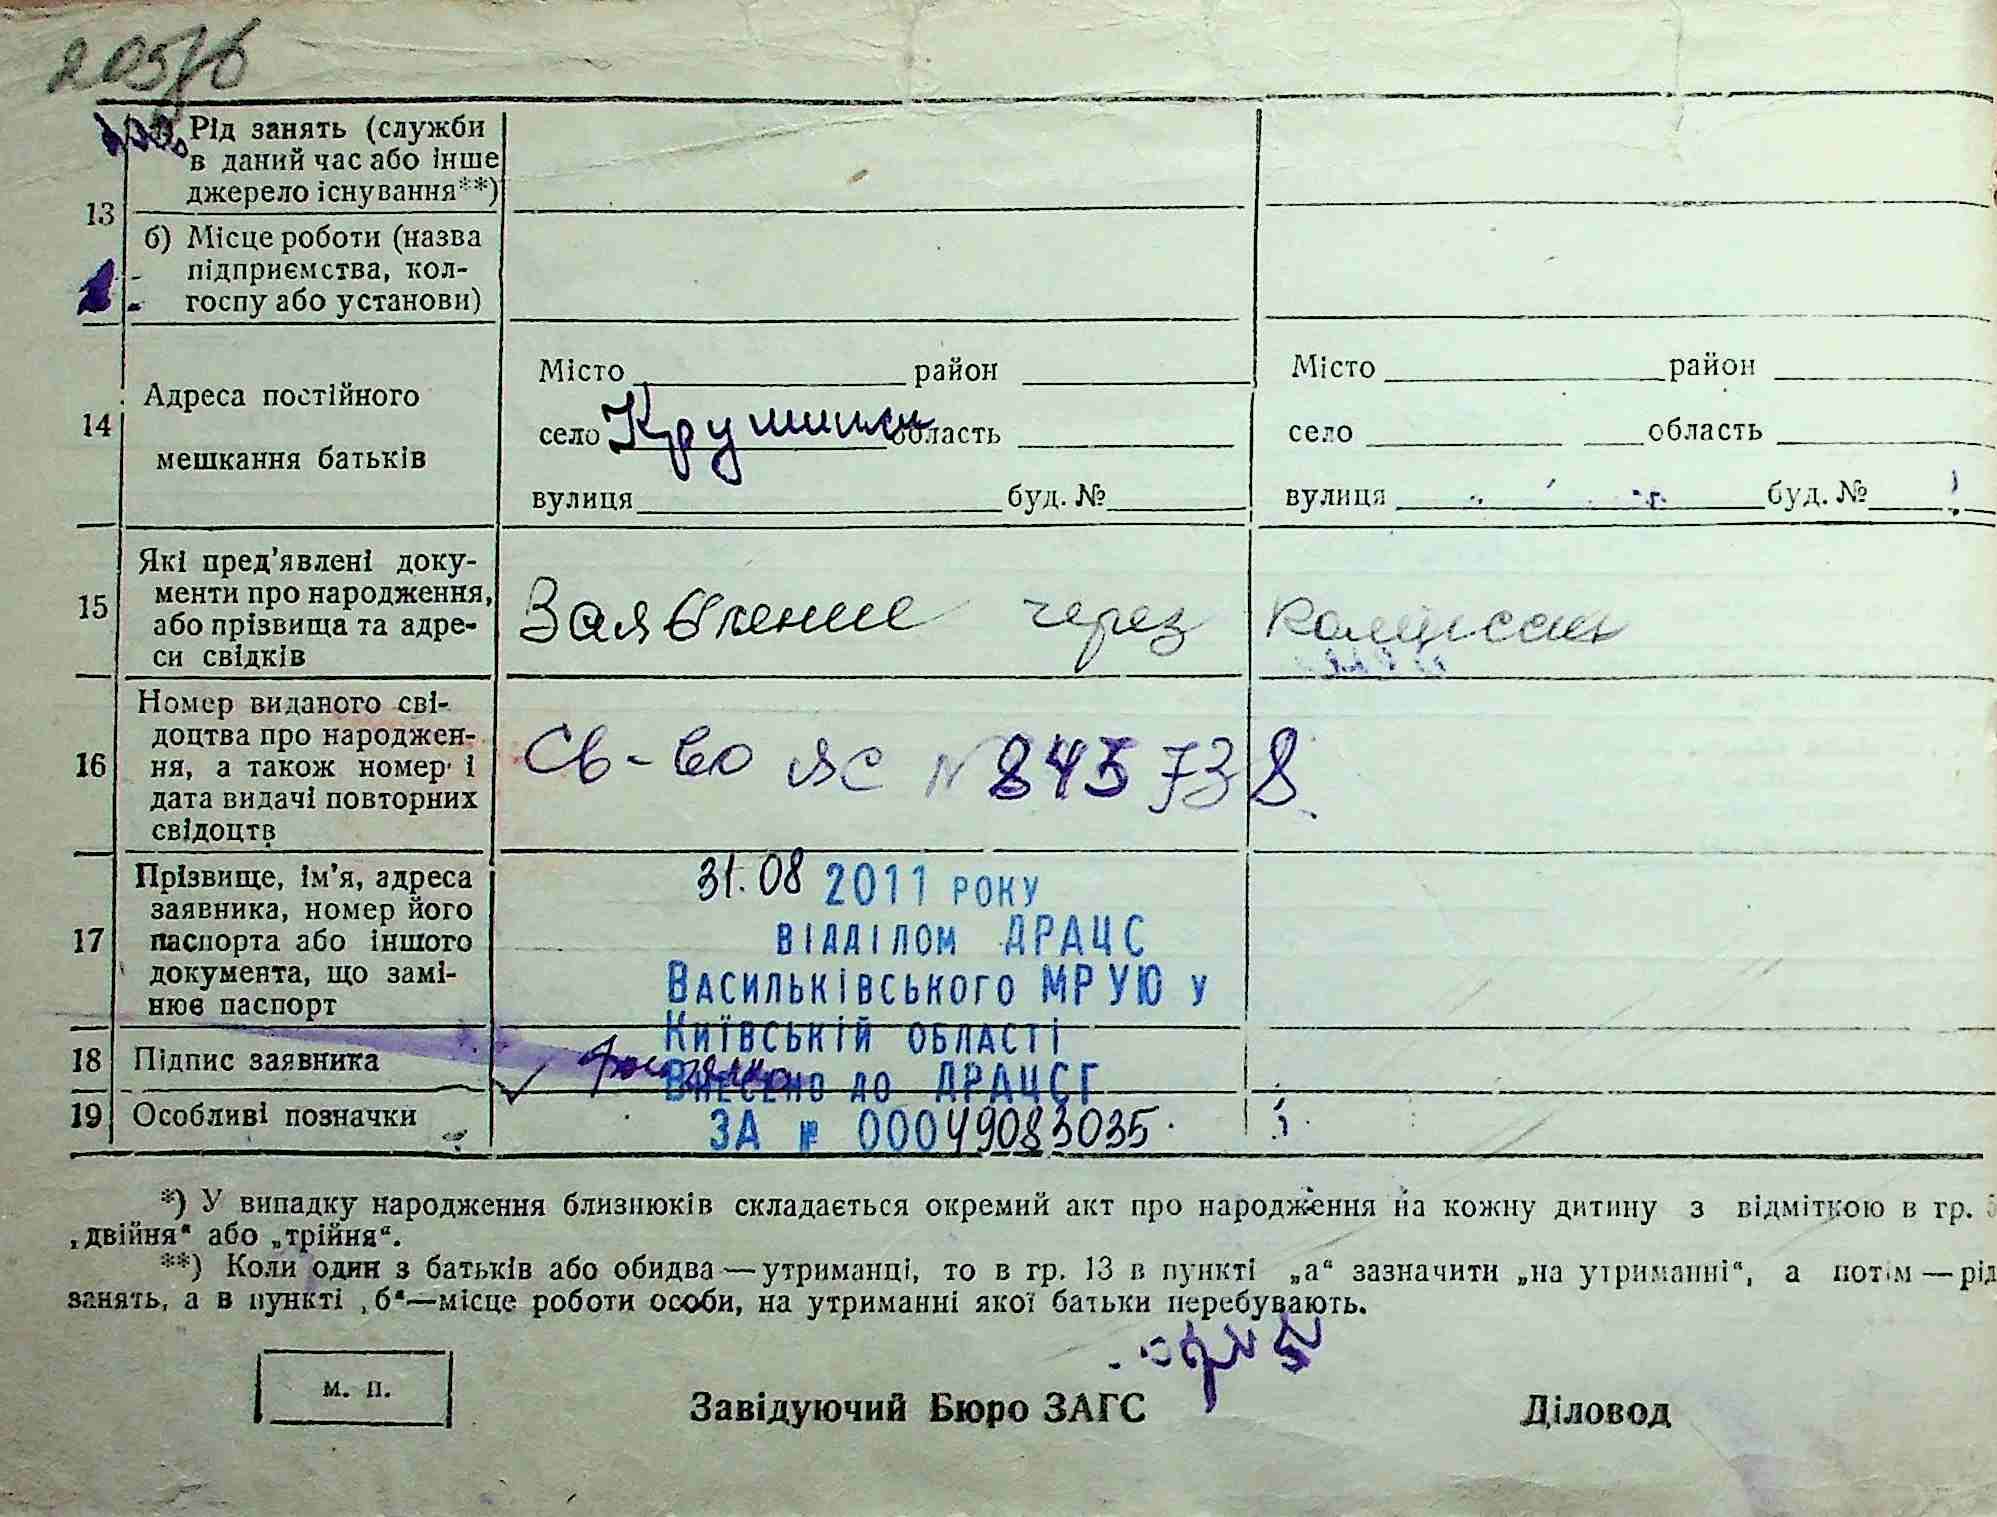 2057б
Рід занять (служби
в даний час або інше
джерело існування**)
13
б) Місце роботи (назва
підприємства, кол-
госпу або установи)
14
Адреса постійного
мешкання батьків
Місто район
село Крушинки область
вулиця буд. №
Місто район
село область
вулиця буд. №
15
Які пред’явлені доку-
менти про народження,
або прізвища та адре-
си свідків
Заявление через комиссию
16
Номер виданого сві-
доцтва про народжен-
ня, а також номер і
дата видачі повторних
свідоцтв
Св-во ЯС № 845738
17
Прізвище, ім’я, адреса
заявника, номер його
паспорта або іншого
документа, що замі-
нює паспорт
31.08 2011 РОКУ
ВІДДІЛОМ ДРАЦС
ВАСИЛЬКІВСЬКОГО МРУЮ У
КИЇВСЬКІЙ ОБЛАСТІ
ВНЕСЕНО ДО ДРАЦСГ
ЗА № 00049083035
18 Підпис заявника
19 Особливі позначки
*) У випадку народження близнюків складається окремий акт про народження на кожну дитину з відміткою в гр. 5
„двійня“ або „трійня“.
**) Коли один з батьків або обидва — утриманці, то в гр. 13 в пункті „а“ зазначити „на утриманні“, а потім — рід
занять, а в пункті „б“ — місце роботи особи, на утриманні якої батьки перебувають.
М. П.
Завідуючий Бюро ЗАГС
Діловод